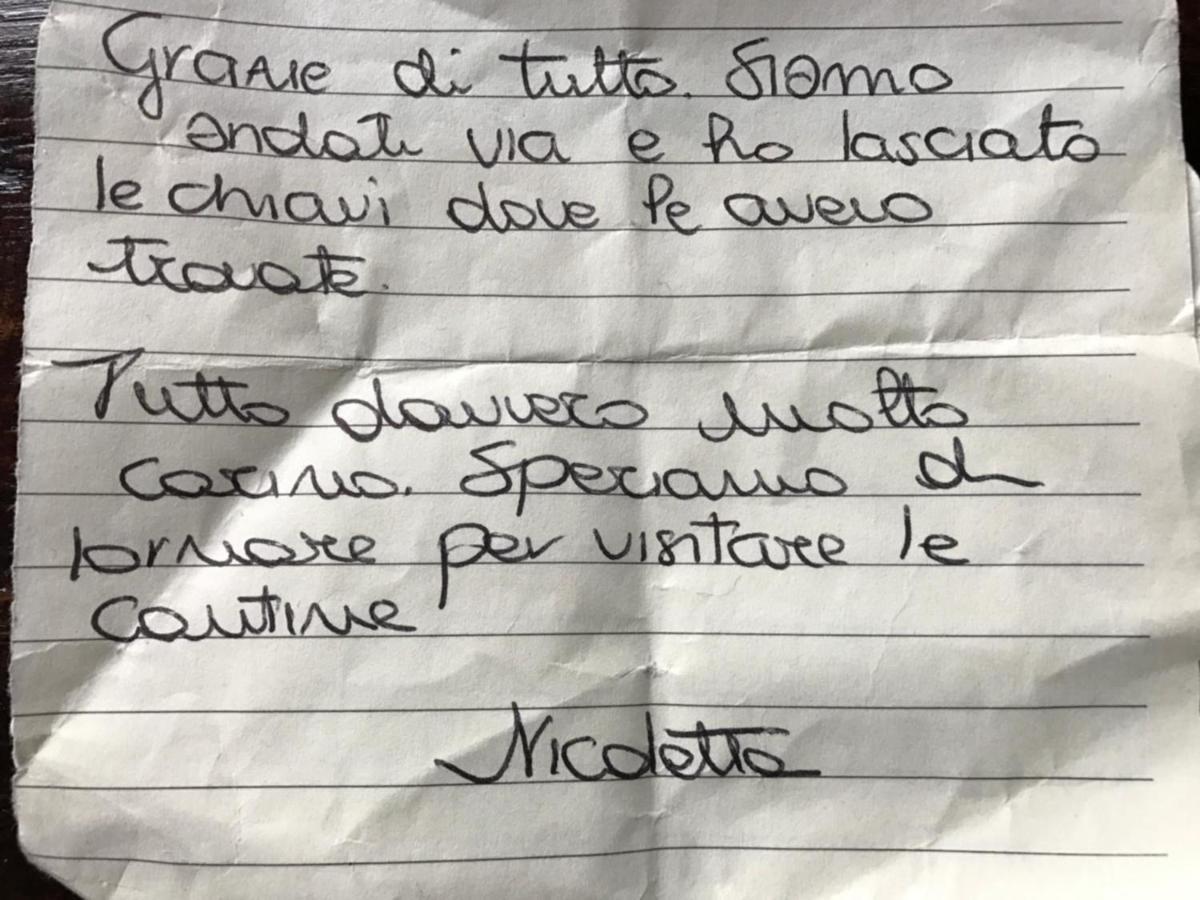 Grazie di tutto. Siamo
andati via e ho lasciato
le chiavi dove le avevo
trovate.
Tutto davvero molto
carino. Speriamo di
tornare per visitare le
cantine
Nicoletta